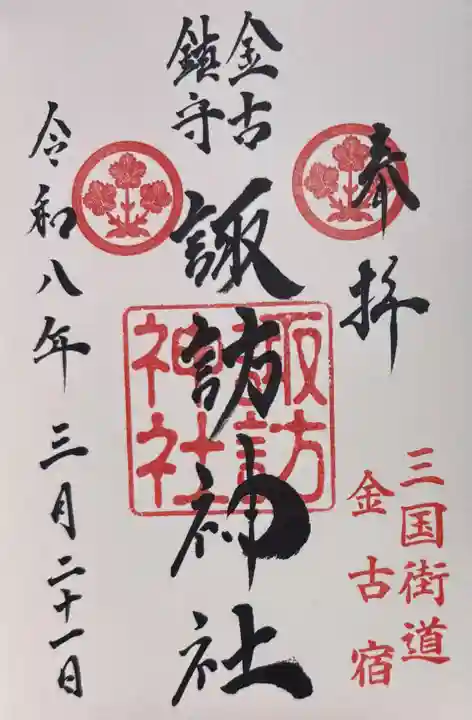 奉拝
三国街道
金古宿
金古
鎮守
諏訪神社
諏訪
神社
令和八年三月二十一日